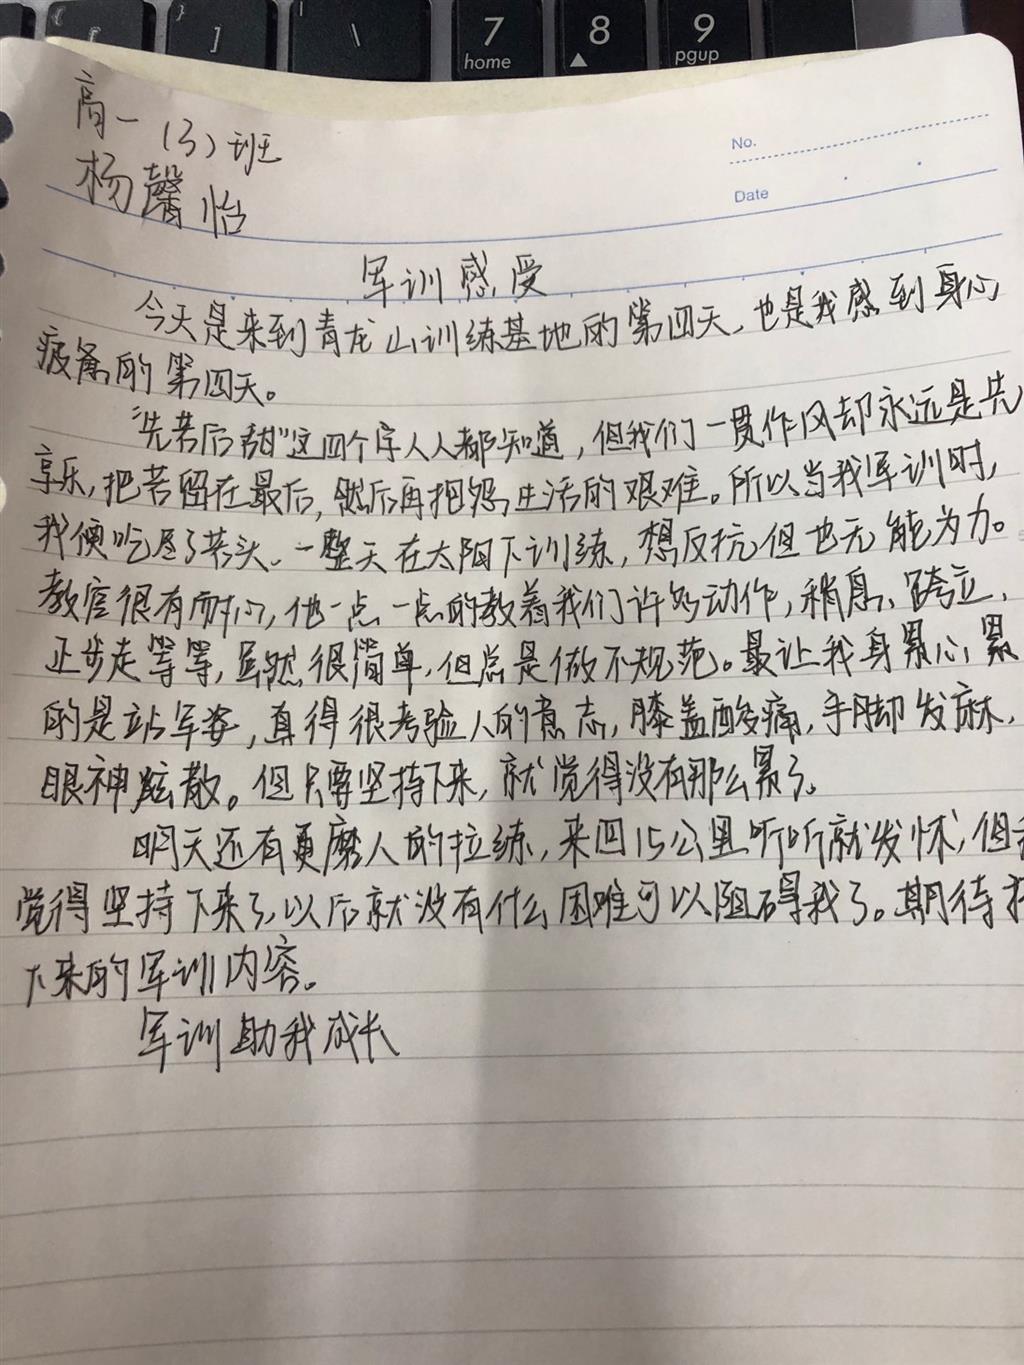 [
]
\
7
home
8
9
pgup
No.
Date
高一（3）班
杨馨怡
军训感受
今天是来到青龙山训练基地的第四天，也是我感到身心
疲惫的第四天。
“先苦后甜”这四个字人人都知道，但我们一贯作风却永远是先
享乐，把苦留在最后，然后再抱怨生活的艰难。所以当我军训时，
我便吃尽了苦头、一整天在太阳下训练，想反抗但也无能为力。
教官很有耐心，他一点一点的教着我们许多动作，稍息、跨立、
正步走等等，虽然很简单，但总是做不规范。最让我身累心累
的是站军姿，真得很考验人的意志，膝盖酸痛，手脚发麻，
眼神眩散。但只要坚持下来，就觉得没有那么累了。
明天还有更磨人的拉练，来回15公里听听就发怵，但我
觉得坚持下来了，以后就没有什么困难可以阻碍我了。期待
下来的军训内容。
军训助我成长